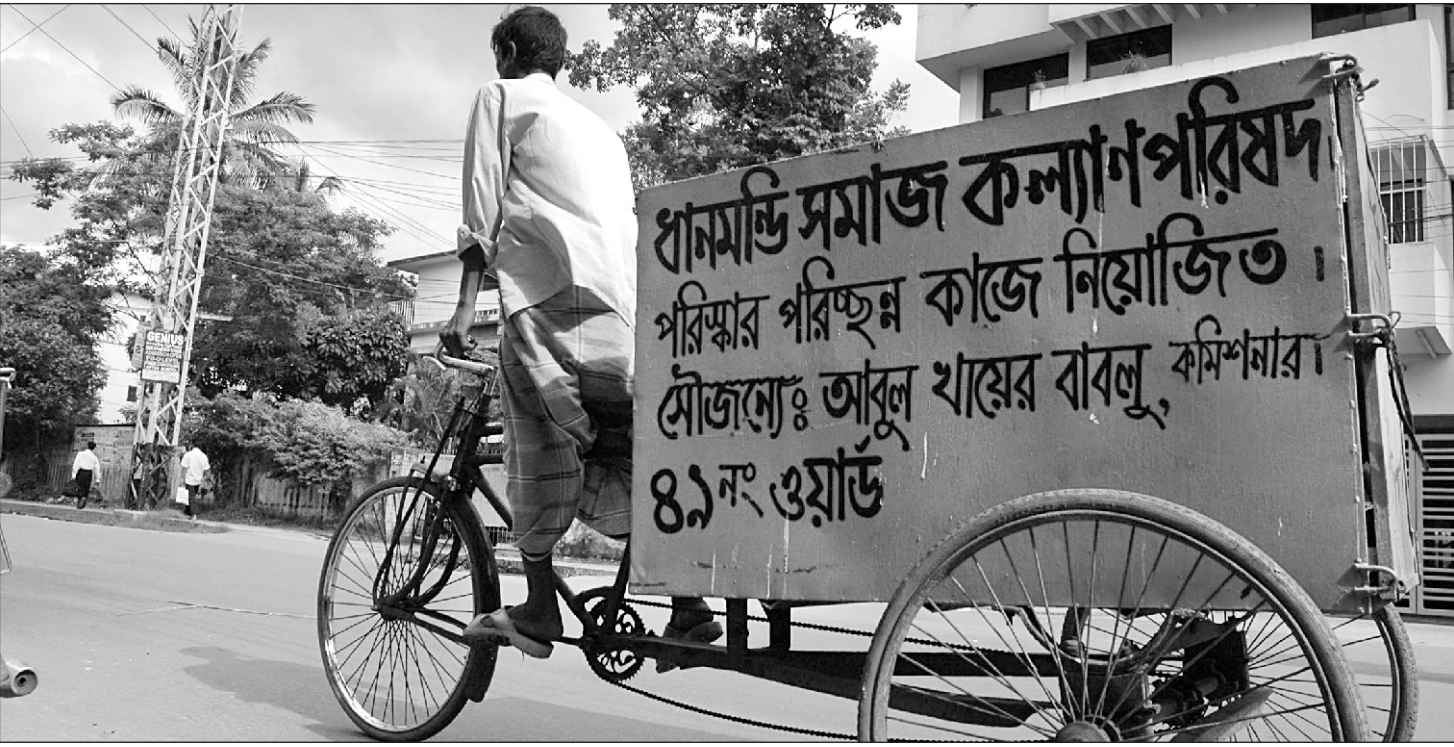 GENIUS
ধানমন্ডি সমাজ কল্যাণ পরিষদ
পরিস্কার পরিচ্ছন্ন কাজে নিয়োজিত ।
সৌজন্যেঃ আবুল খায়ের বাবলু, কমিশনার।
৪৯ নং ওয়ার্ড